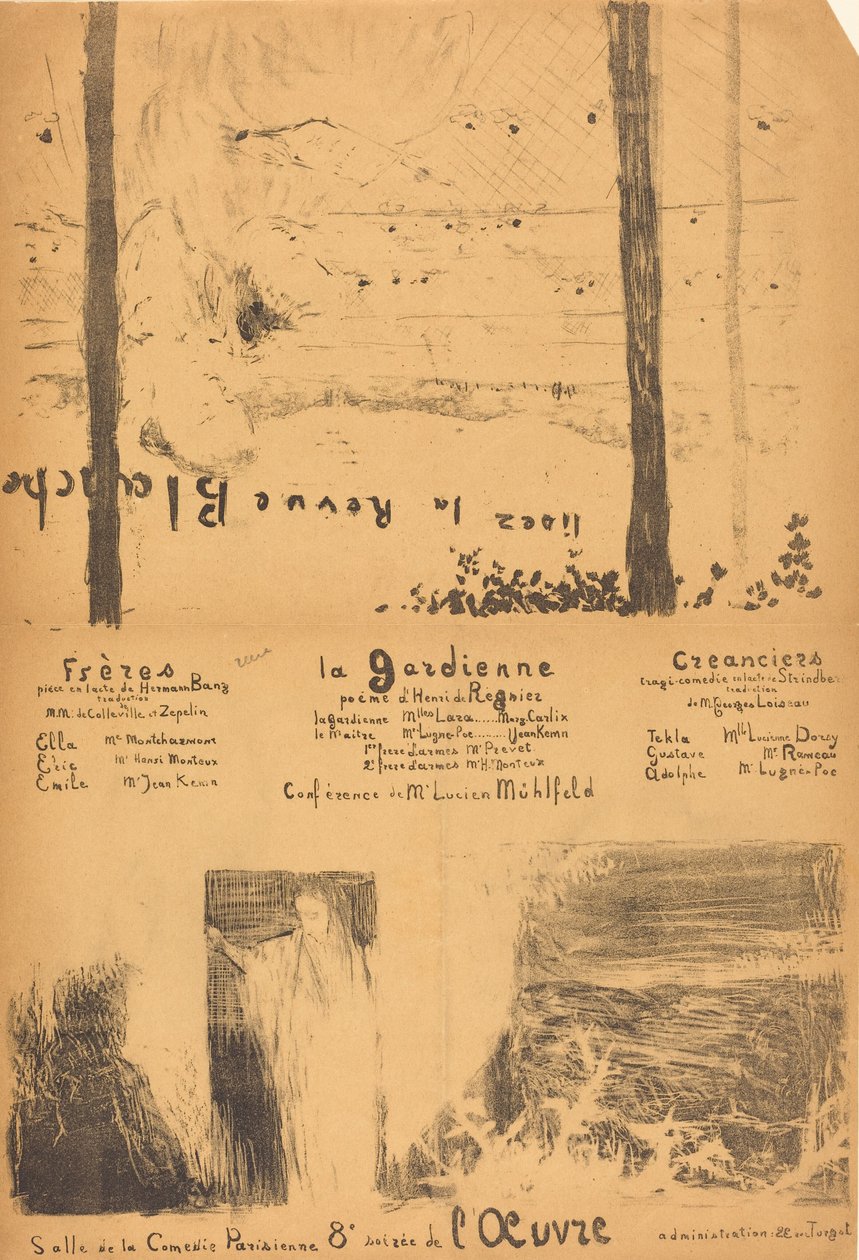 lisez la Revue Blanche
Frères
pièce en 1 acte de Hermann Bang
traduction
de
M.M. de Colleville et Zepelin
Ella Me Montcharmont
Eric Mr Henri Monteux
Emile Mr Jean Kemm
la gardienne
poème d'Henri de Régnier
la gardienne Mlles Lara......Marg. Carlix
le maitre Mr Lugné-Poe.........Jean Kemn
1er frere d'armes Mr Prevet
2e frere d'armes Mr H. Monteux
Conférence de Mr Lucien Mühlfeld
Creanciers
tragi-comedie en 1 acte de Strindberg
traduction
de M. Georges Loiseau
Tekla Mlle Lucienne Dorsy
Gustave Mr Rameau
Adolphe Mr Lugné-Poe
Salle de la Comedie Parisienne 8e soirée de l'Œuvre
administration: 22 rue Turgot